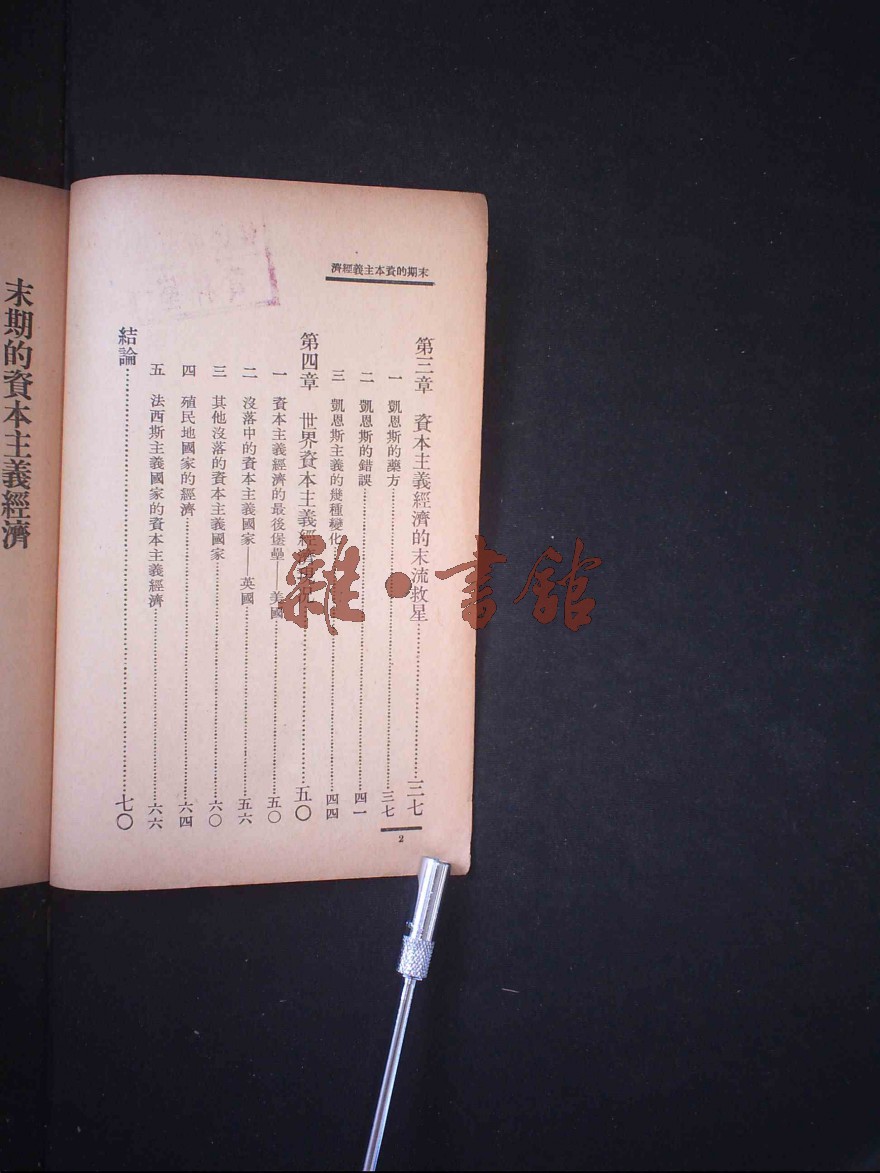 末期的資本主義經濟
第三章　資本主義經濟的末流救星……三七
一　凱恩斯的藥方……三七
二　凱恩斯的錯誤……四一
三　凱恩斯主義的幾種變化……四四
第四章　世界資本主義經濟現況……五〇
一　資本主義經濟的最後堡壘——美國……五〇
二　沒落中的資本主義國家——英國……五六
三　其他沒落的資本主義國家……六〇
四　殖民地國家的經濟……六四
五　法西斯主義國家的資本主義經濟……六六
結論……七〇
2
末期的資本主義經濟
雜·書館